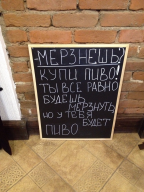 -МЕРЗНЕШЬ?
КУПИ ПИВО!
ТЫ ВСЕ РАВНО
БУДЕШЬ МЕРЗНУТЬ
НО У ТЕБЯ
БУДЕТ
ПИВО